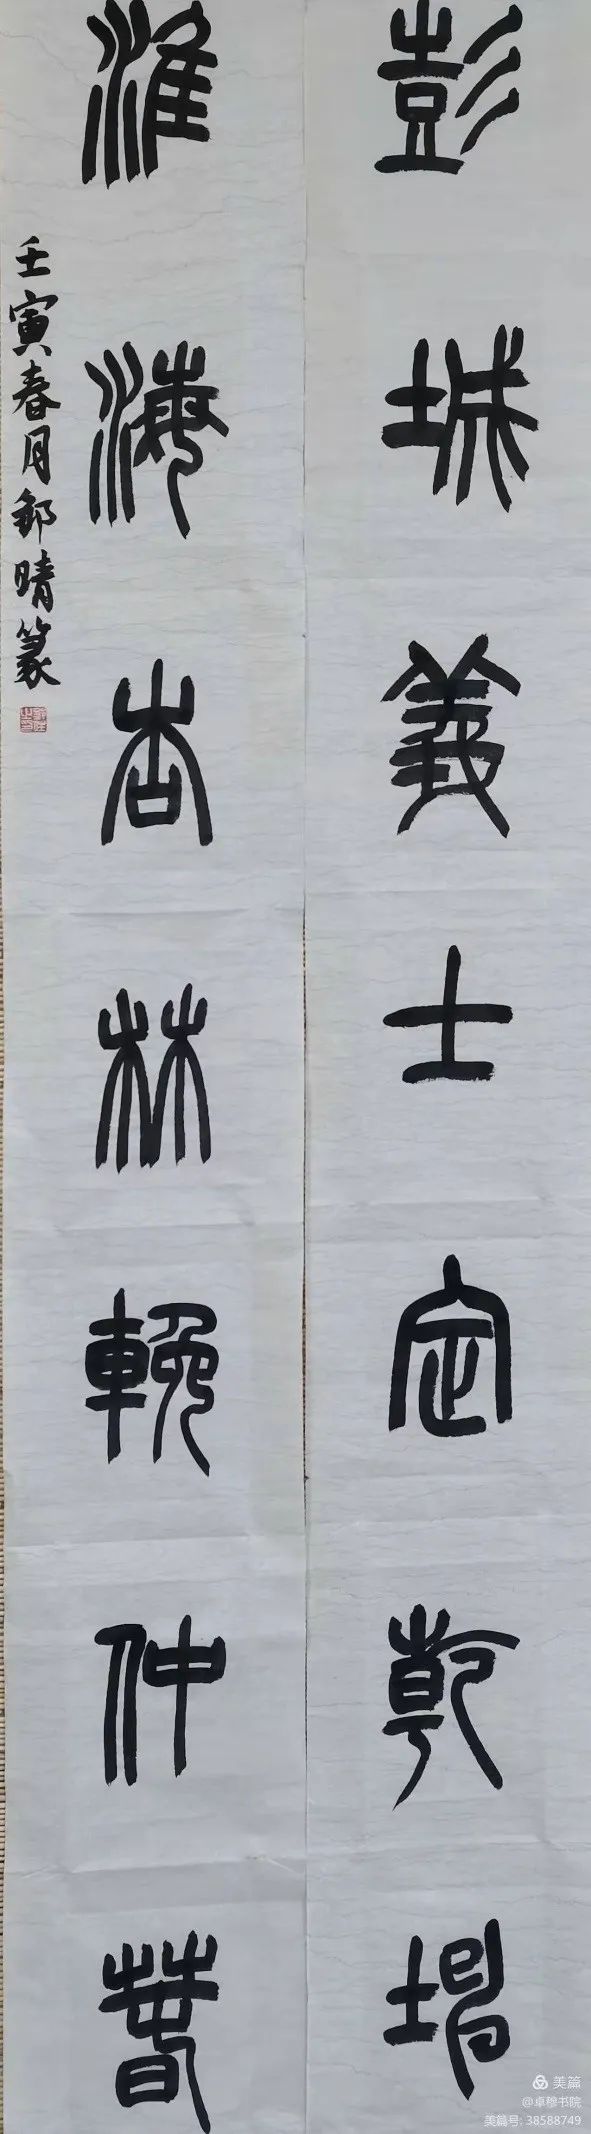 彭城義士定乾坤
淮海杏林輓仲春
壬寅春月鄒晴篆
美篇
@卓穆书院
美篇号: 38588749